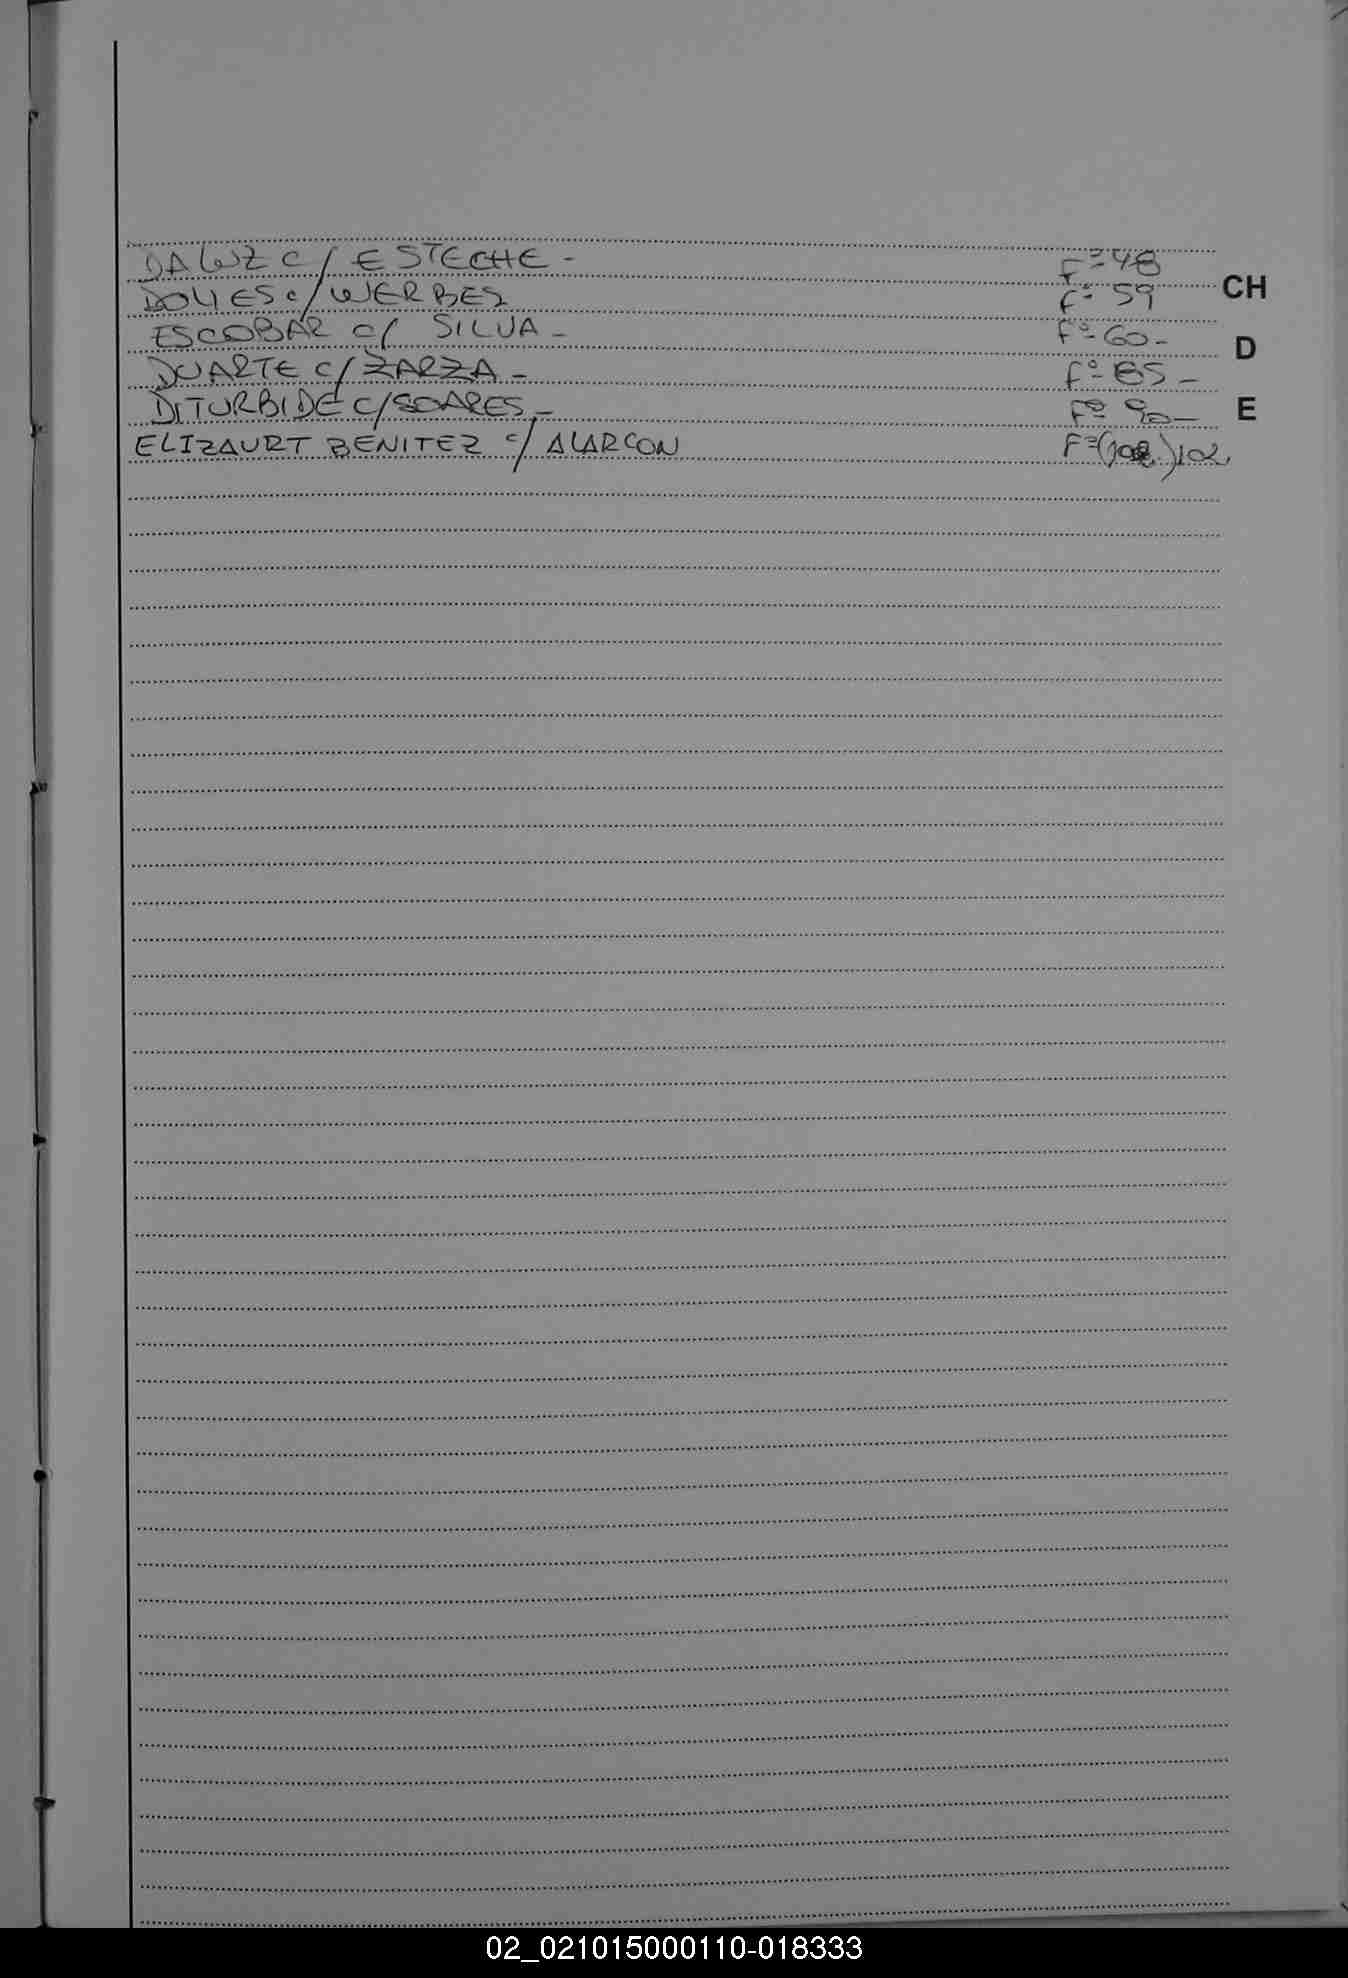 DAWZ C/ ESTECHE - Fº 48
DOLLES C/ WERBES Fº 59
CH
ESCOBAR C/ SILVA - Fº 60 -
D
DUARTE C/ ZARZA - Fº 85 -
DITURBIDE C/ SOARES - Fº 90 -
E
ELIZAURT BENITEZ C/ ALARCON Fº ( ) 102
02_021015000110-018333